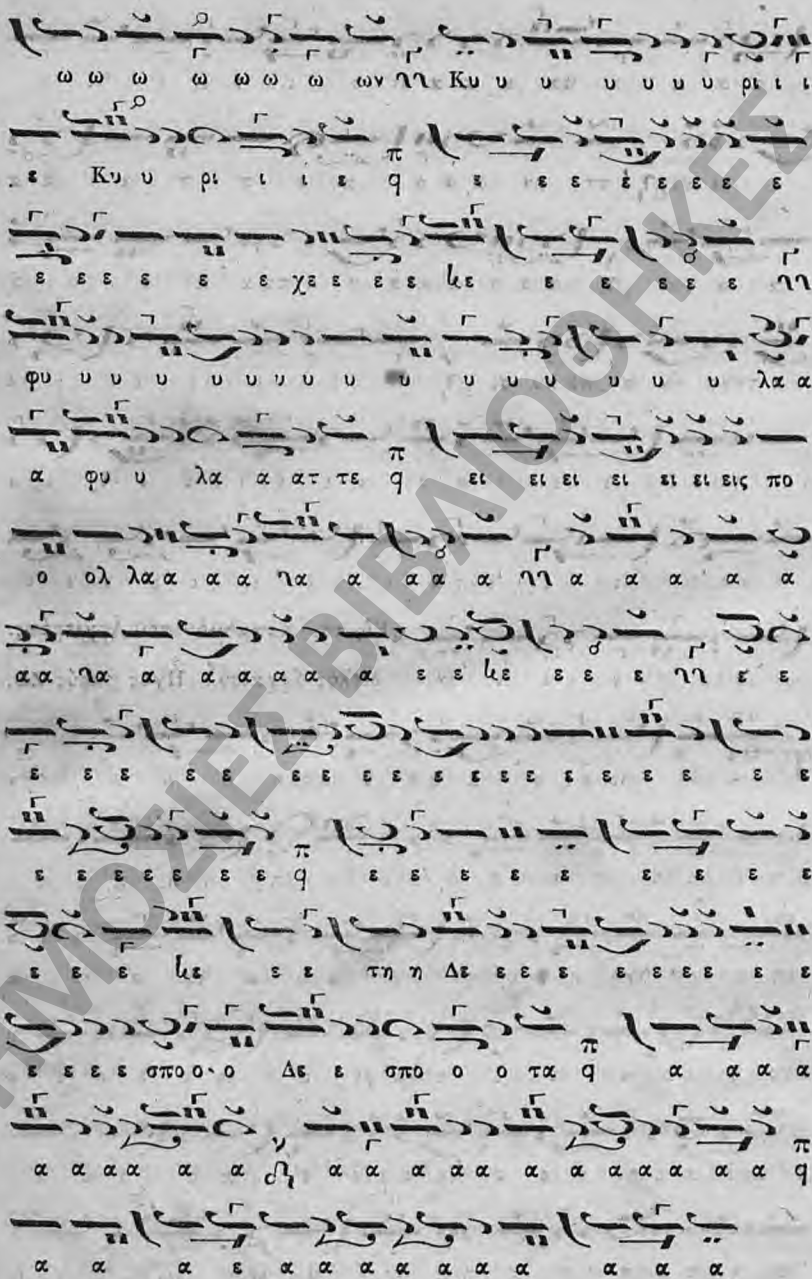 ω ω ω ω ω ω ω ων Κυ υ υ υ υ υ υ ρι ι ι
ε Κυ υ ρι ι ι ε π q ε ε ε ε ε ε ε ε
ε ε ε ε ε ε χε ε ε ε ε ε ε ε ε ε
φυ υ υ υ υ υ υ υ υ υ υ υ υ υ υ λα α
α φυ υ λα α ατ τε π q ει ει ει ει ει ει εις πο
ο ολ λαα α α α α α α α α α α α
αα α α α α α α ε ε ε ε ε ε ε
ε ε ε ε ε ε ε ε ε ε ε ε ε ε ε ε ε
ε ε ε ε ε ε ε π q ε ε ε ε ε ε ε ε ε
ε ε ε ε ε τη η Δε ε ε ε ε ε ε ε ε ε
ε ε ε ε σπο ο ο Δε ε σπο ο ο τα π q α α α α
α α α α α α ν α α α α α α α α α α α π q
α α α ε α α α α α α α α α α
ΔΗΜΟΣΙΕΣ ΒΙΒΛΙΟΘΗΚΕΣ